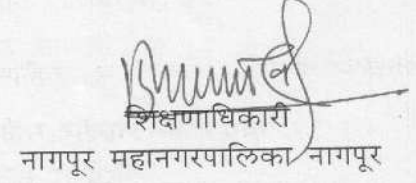 शिक्षणाधिकारी
नागपूर महानगरपालिका नागपूर